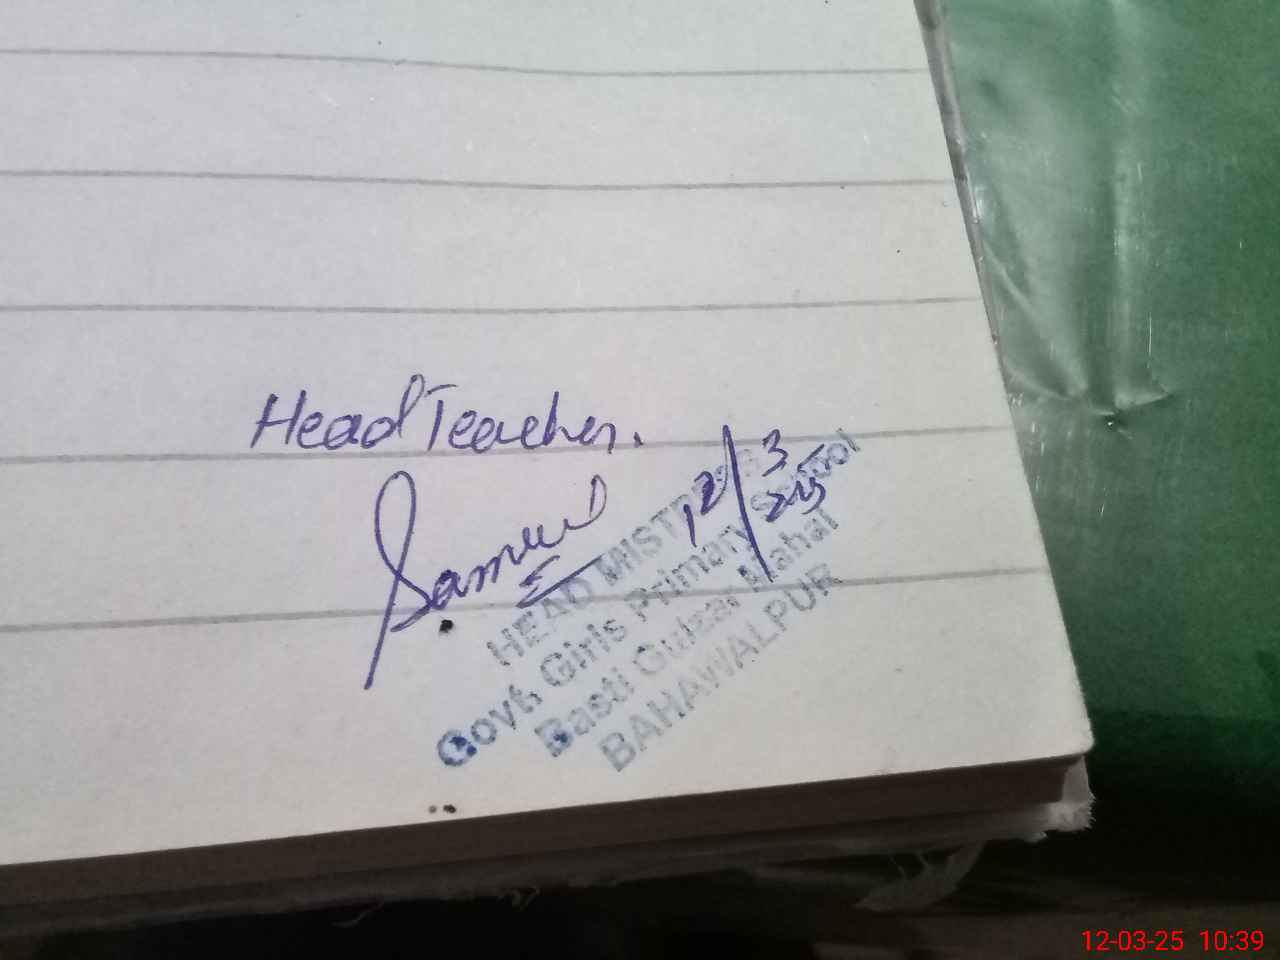 Head Teacher.
12/3
HEAD MISTRESS
Govt. Girls Primary School
Basti Gulzar Mahal
BAHAWALPUR
12-03-25 10:39